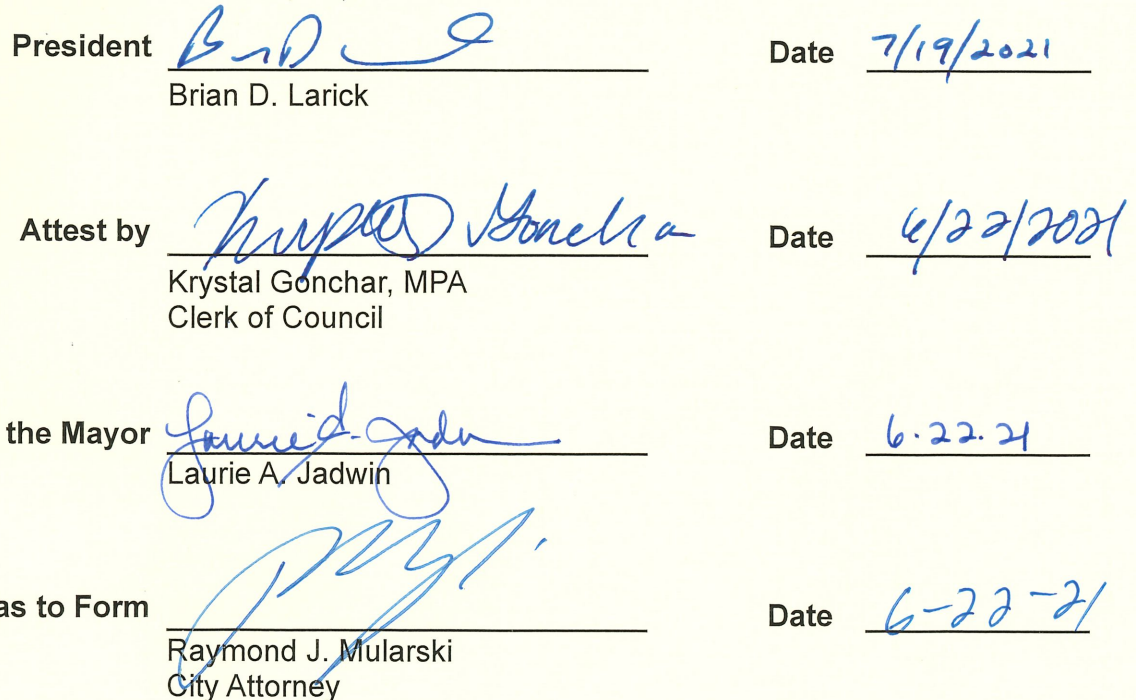 President Brian D. Larick Date 7/19/2021
Brian D. Larick
Attest by Krystal Gonchar Date 6/22/2021
Krystal Gonchar, MPA
Clerk of Council
the Mayor Laurie A. Jadwin Date 6.22.21
Laurie A. Jadwin
as to Form Date 6-22-21
Raymond J. Mularski
City Attorney